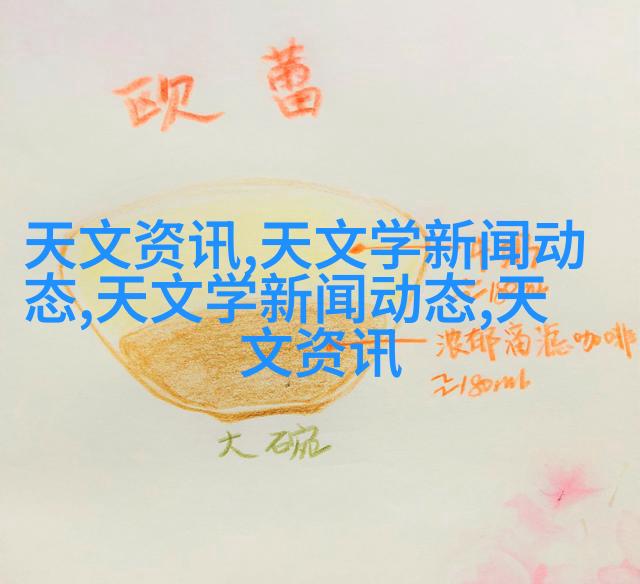 欧蕾
天文资讯,天文学新闻动
态,天文学新闻动态,天
文资讯
≈180mL
浓郁滴滤咖啡
≈180mL
大碗